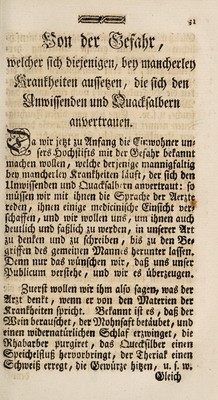 31
Von der Gefahr,
welcher sich diejenigen, bey mancherley
Krankheiten aussetzen, die sich den
Unwissenden und Quacksalbern
anvertrauen.
Da wir jetzt zu Anfang die Einwohner un-
sers Hochstifts mit der Gefahr bekannt
machen wollen, welche derjenige mannigfaltig
bey mancherley Krankheiten läuft, der sich den
Unwissenden und Quacksalbern anvertraut: so
müssen wir mit ihnen die Sprache der Aerzte
reden, ihnen einige medicinische Einsicht ver-
schaffen, und wir wollen uns, um ihnen auch
deutlich und faßlich zu werden, in unserer Art
zu denken und zu schreiben, bis zu den Be-
griffen des gemeinen Mannes herunter lassen.
Denn nur das wünschen wir, daß uns unser
Publicum verstehe, und wir es überzeugen.
Zuerst wollen wir ihm also sagen, was der
Arzt denkt, wenn er von den Materien der
Krankheiten spricht. Bekannt ist es, daß der
Wein berauschet, der Mohnsaft betäubet, und
einen widernatürlichen Schlaf erzwinget, die
Rhabarber purgiret, das Quecksilber einen
Speichelfluß hervorbringt, der Theriak einen
Schweiß erregt, die Gewürze hitzen, u. s. w.
Gleich